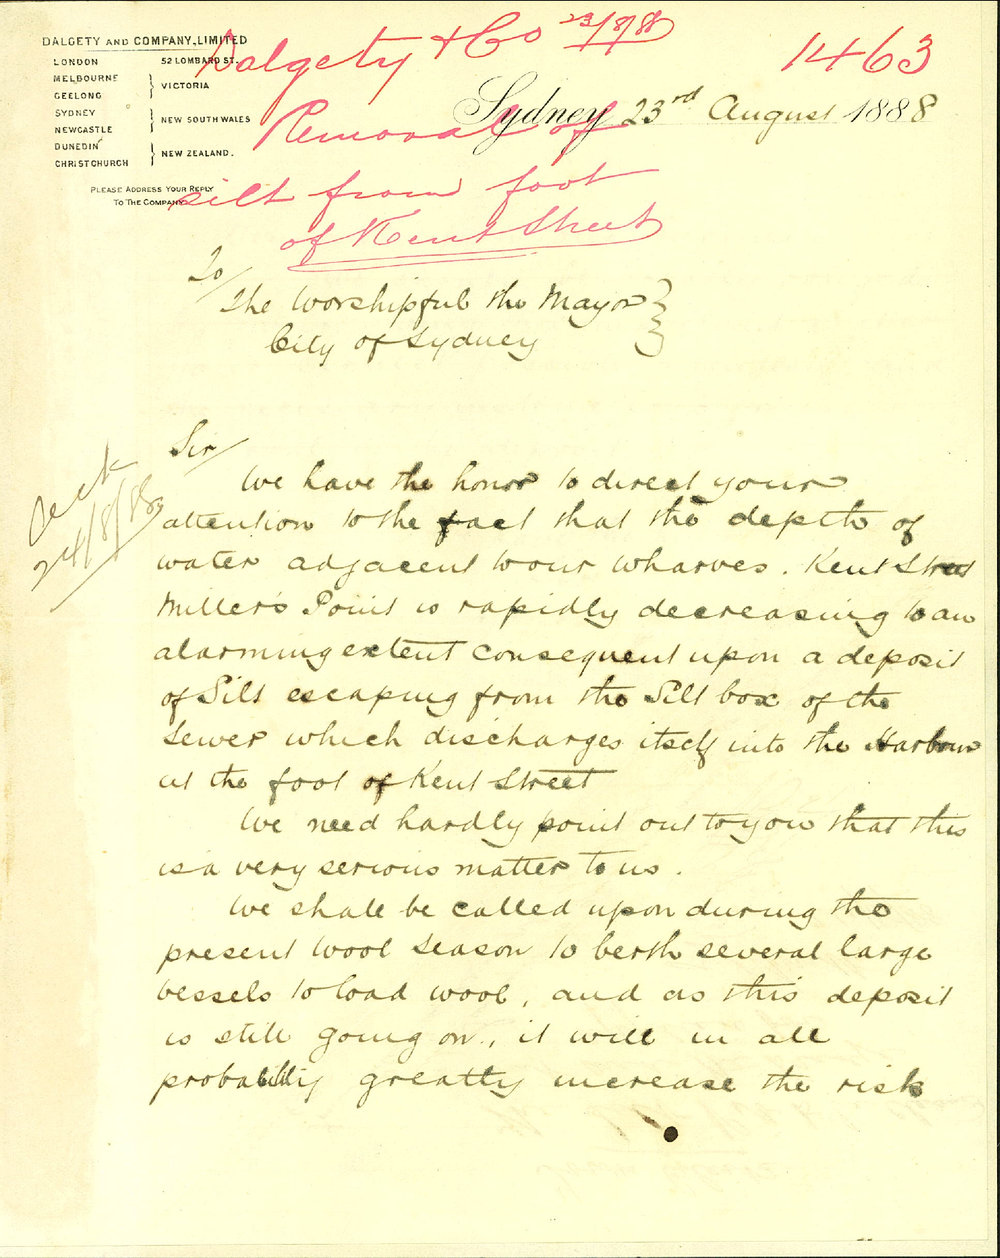 DALGETY AND COMPANY, LIMITED
LONDON 52 LOMBARD ST.
MELBOURNE
GEELONG
VICTORIA
SYDNEY
NEWCASTLE
NEW SOUTH WALES
DUNEDIN
CHRISTCHURCH
NEW ZEALAND.
PLEASE ADDRESS YOUR REPLY
TO THE COMPANY.
Dalgety & Co 23/8/88
1463
Removal of
silt from foot
of Kent Street
Sydney 23rd August 1888
To/
The Worshipful the Mayor
City of Sydney
24/8/88
Sir/
We have the honor to direct your
attention to the fact that the depth of
water adjacent to our wharves. Kent Street
Miller's Point is rapidly decreasing to an
alarming extent consequent upon a deposit
of Silt escaping from the Silt box of the
Sewer which discharges itself into the Harbour
at the foot of Kent Street
We need hardly point out to you that this
is a very serious matter to us.
We shall be called upon during the
present wool season to berth several large
vessels to load wool, and as this deposit
is still going on, it will in all
probability greatly increase the risk